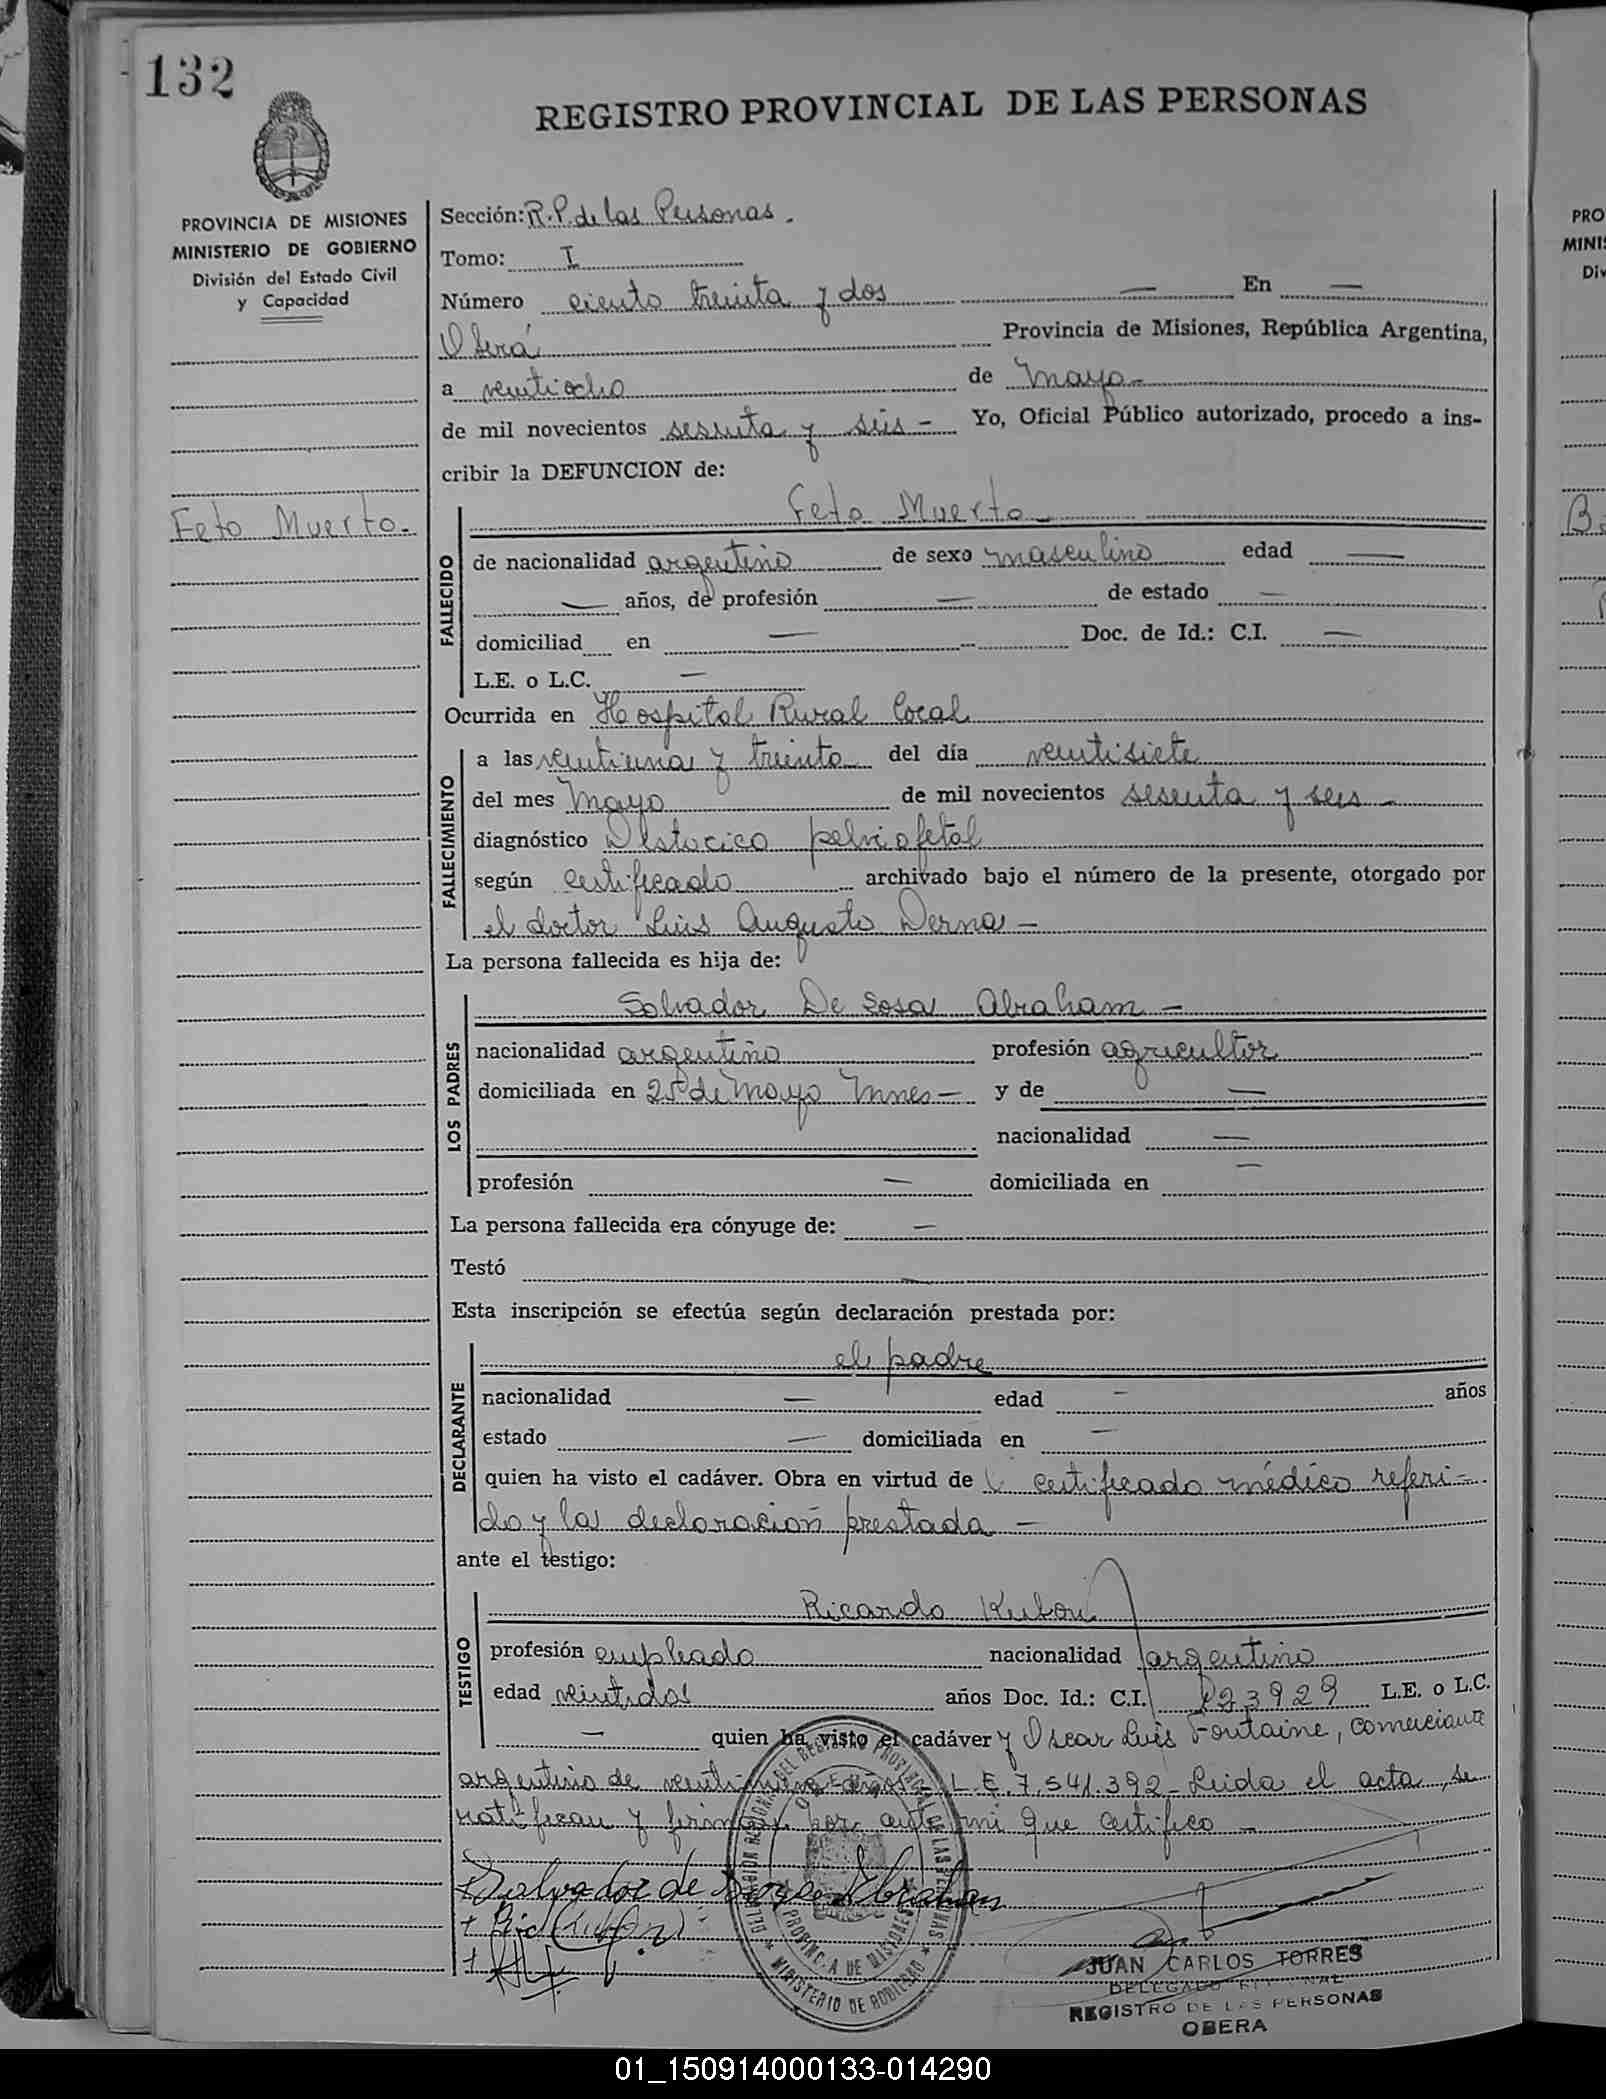 132
REGISTRO PROVINCIAL DE LAS PERSONAS
PROVINCIA DE MISIONES
MINISTERIO DE GOBIERNO
División del Estado Civil
y Capacidad
Feto Muerto.
Sección: R.P. de las Personas.
Tomo: I
Número ciento treinta y dos — En —
Oberá Provincia de Misiones, República Argentina,
a veintiocho de Mayo-
de mil novecientos sesenta y seis - Yo, Oficial Público autorizado, procedo a ins-
cribir la DEFUNCION de:
FALLECIDO
Feto Muerto-
de nacionalidad argentino de sexo masculino edad —
— años, de profesión — de estado —
domiciliad en — Doc. de Id.: C.I. —
L.E. o L.C. —
Ocurrida en Hospital Rural local
FALLECIMIENTO
a las veintiuna y treinta del día veintisiete
del mes Mayo de mil novecientos sesenta y seis -
diagnóstico Distocico pelviofetal
según certificado archivado bajo el número de la presente, otorgado por
el doctor Luis Augusto Derna -
La persona fallecida es hija de:
LOS PADRES
Salvador De Sosa Abraham -
nacionalidad argentino profesión agricultor
domiciliada en 25 de Mayo Mnes- y de —
nacionalidad —
profesión — domiciliada en —
La persona fallecida era cónyuge de: —
Testó —
Esta inscripción se efectúa según declaración prestada por:
DECLARANTE
el padre
nacionalidad — edad - años
estado — domiciliada en —
quien ha visto el cadáver. Obra en virtud de certificado médico referi-
do y la declaración prestada -
ante el testigo:
TESTIGO
Ricardo Kubon
profesión empleado nacionalidad argentino
edad veintidos años Doc. Id.: C.I. 123929 L.E. o L.C.
— quien ha visto el cadáver y Oscar Luis Fontaine, comerciante
argentino de años - L.E. 7.541.392 - Leida el acta, se
ratifican y firman por ante mi que certifico -
+ Salvador de Abraham
+ Ric Kubon
+
MINISTERIO DE GOBIERNO
PROVINCIA DE MISIONES
JUAN CARLOS TORRES
DELEGADO
REGISTRO DE LAS PERSONAS
OBERA
PRO
MINIS
Div
01_150914000133-014290